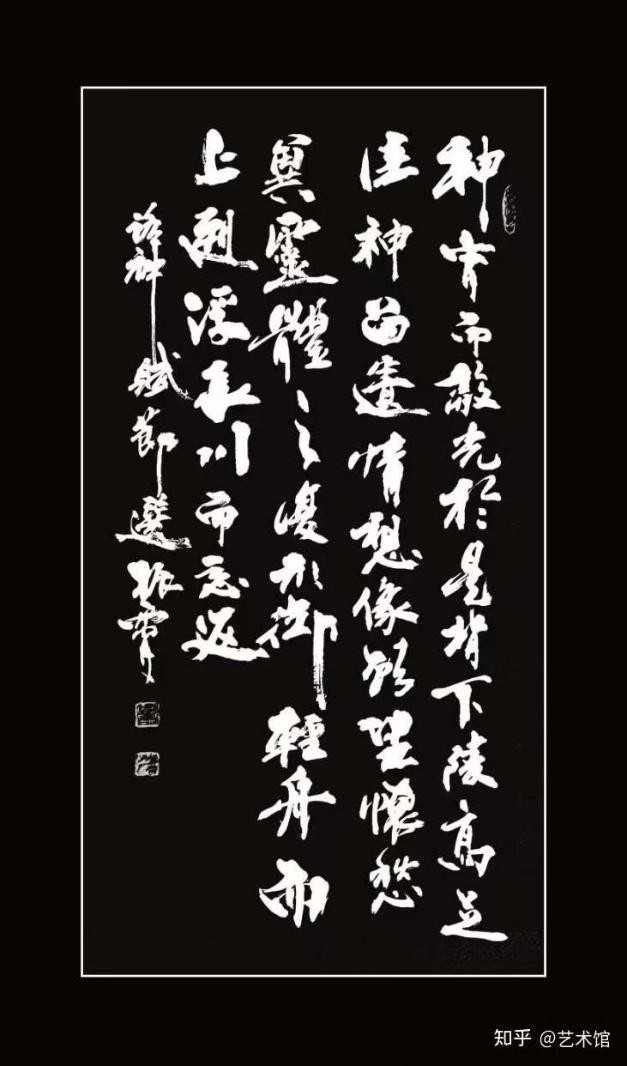 神宵而蔽光於是背下陵高足
往神留遺情想像顧望懷愁
冀靈體之復形御輕舟而
上遡浮長川而忘返
洛神賦節選振
知乎 @艺术馆